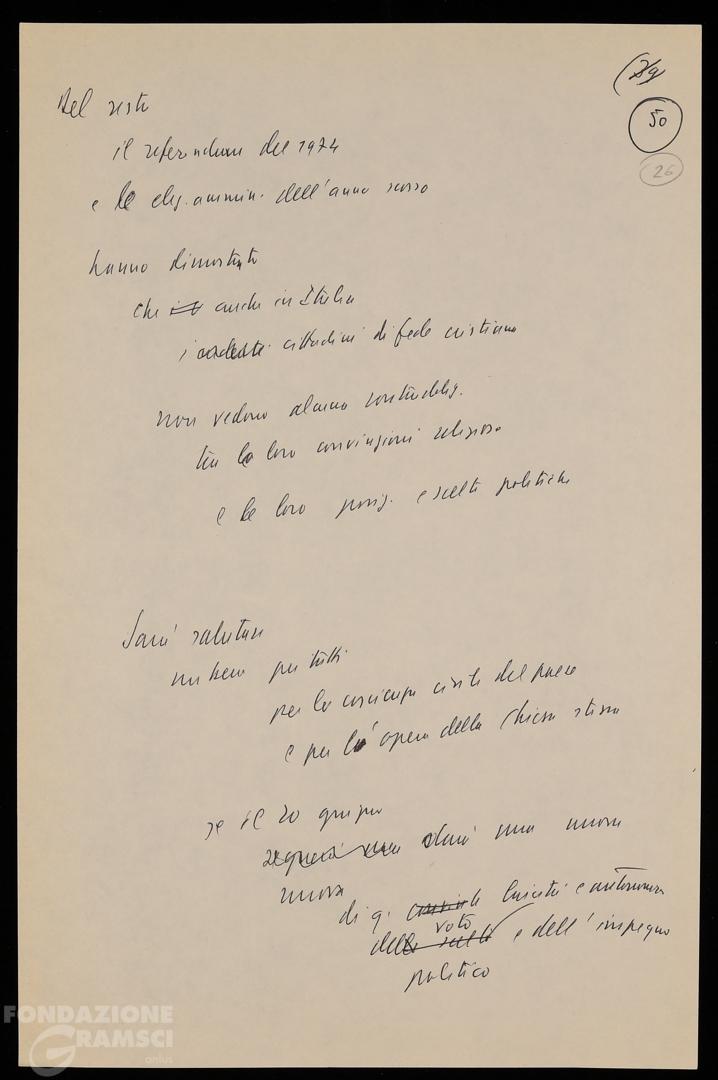 50
26
Del resto
il referendum del 1974
e le eleg. ammin. dell'anno scorso
hanno dimostrato
che anche in Italia
i cittadini di fede cristiana
non vedono alcuna
tra le loro convinzioni religiose
e le loro posiz. e scelte politiche
Sarà salutare
un bene per tutti
per la coscienza civile del paese
e per l'opera della Chiesa stessa
se il 20 giugno
darà una nuova
nuova
di q. laicità e autonomia
del voto e dell'impegno
politico
FONDAZIONE
GRAMSCI
onlus